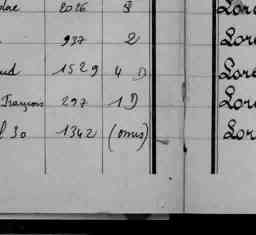 2026 8 Lore
937 2 Lore
ud 1529 4 D Lore
François 297 1 D Lore
l 30 1342 (omis) Lor